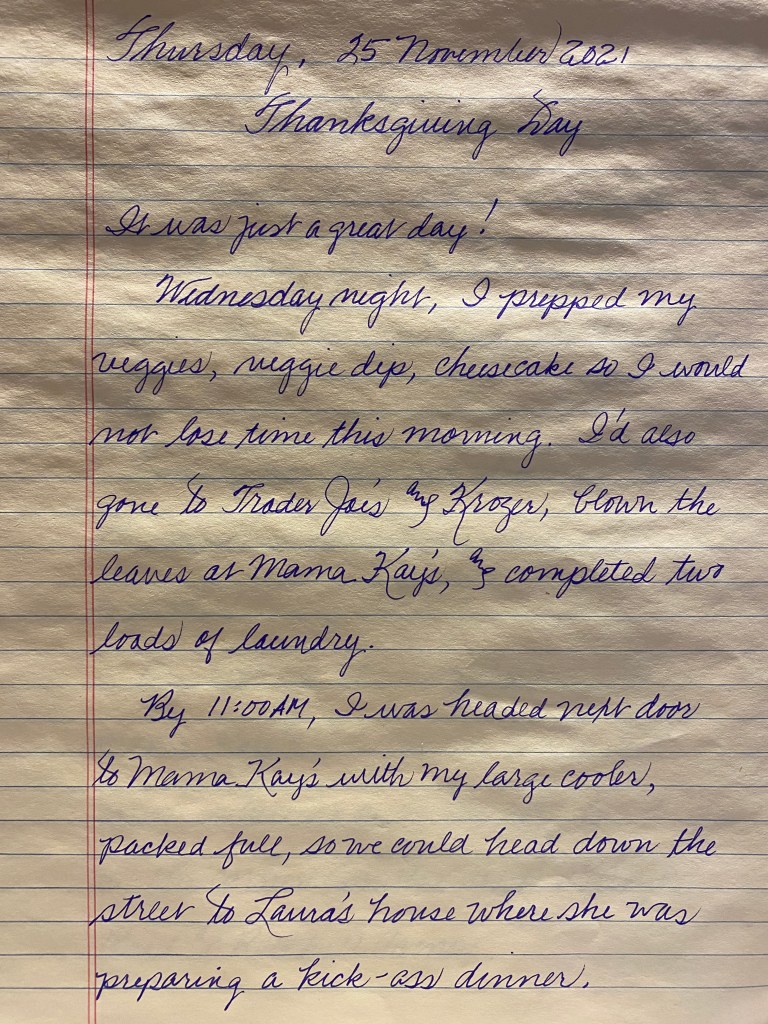 Thursday, 25 November 2021
Thanksgiving Day
It was just a great day!
Wednesday night, I prepped my
veggies, veggie dip, cheesecake so I would
not lose time this morning. I'd also
gone to Trader Joe's and Kroger, blown the
leaves at Mama Kay's, and completed two
loads of laundry.
By 11:00AM, I was headed next door
to Mama Kay's with my large cooler,
packed full, so we could head down the
street to Laura's house where she was
preparing a kick-ass dinner.